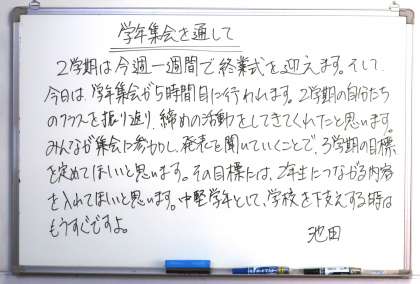 学年集会を通して
2学期は今週一週間で終業式を迎えます。そして、
今日は、学年集会が5時間目に行われます。2学期の自分たち
のクラスを振り返り、締めの活動をしてきてくれたと思います。
みんなが集会に参加し、発表を聞いていくことで、3学期の目標
を定めてほしいと思います。その目標には、2年生につながる内容
を入れてほしいと思います。中堅学年として、学校を下支えする時は
もうすぐですよ。
池田